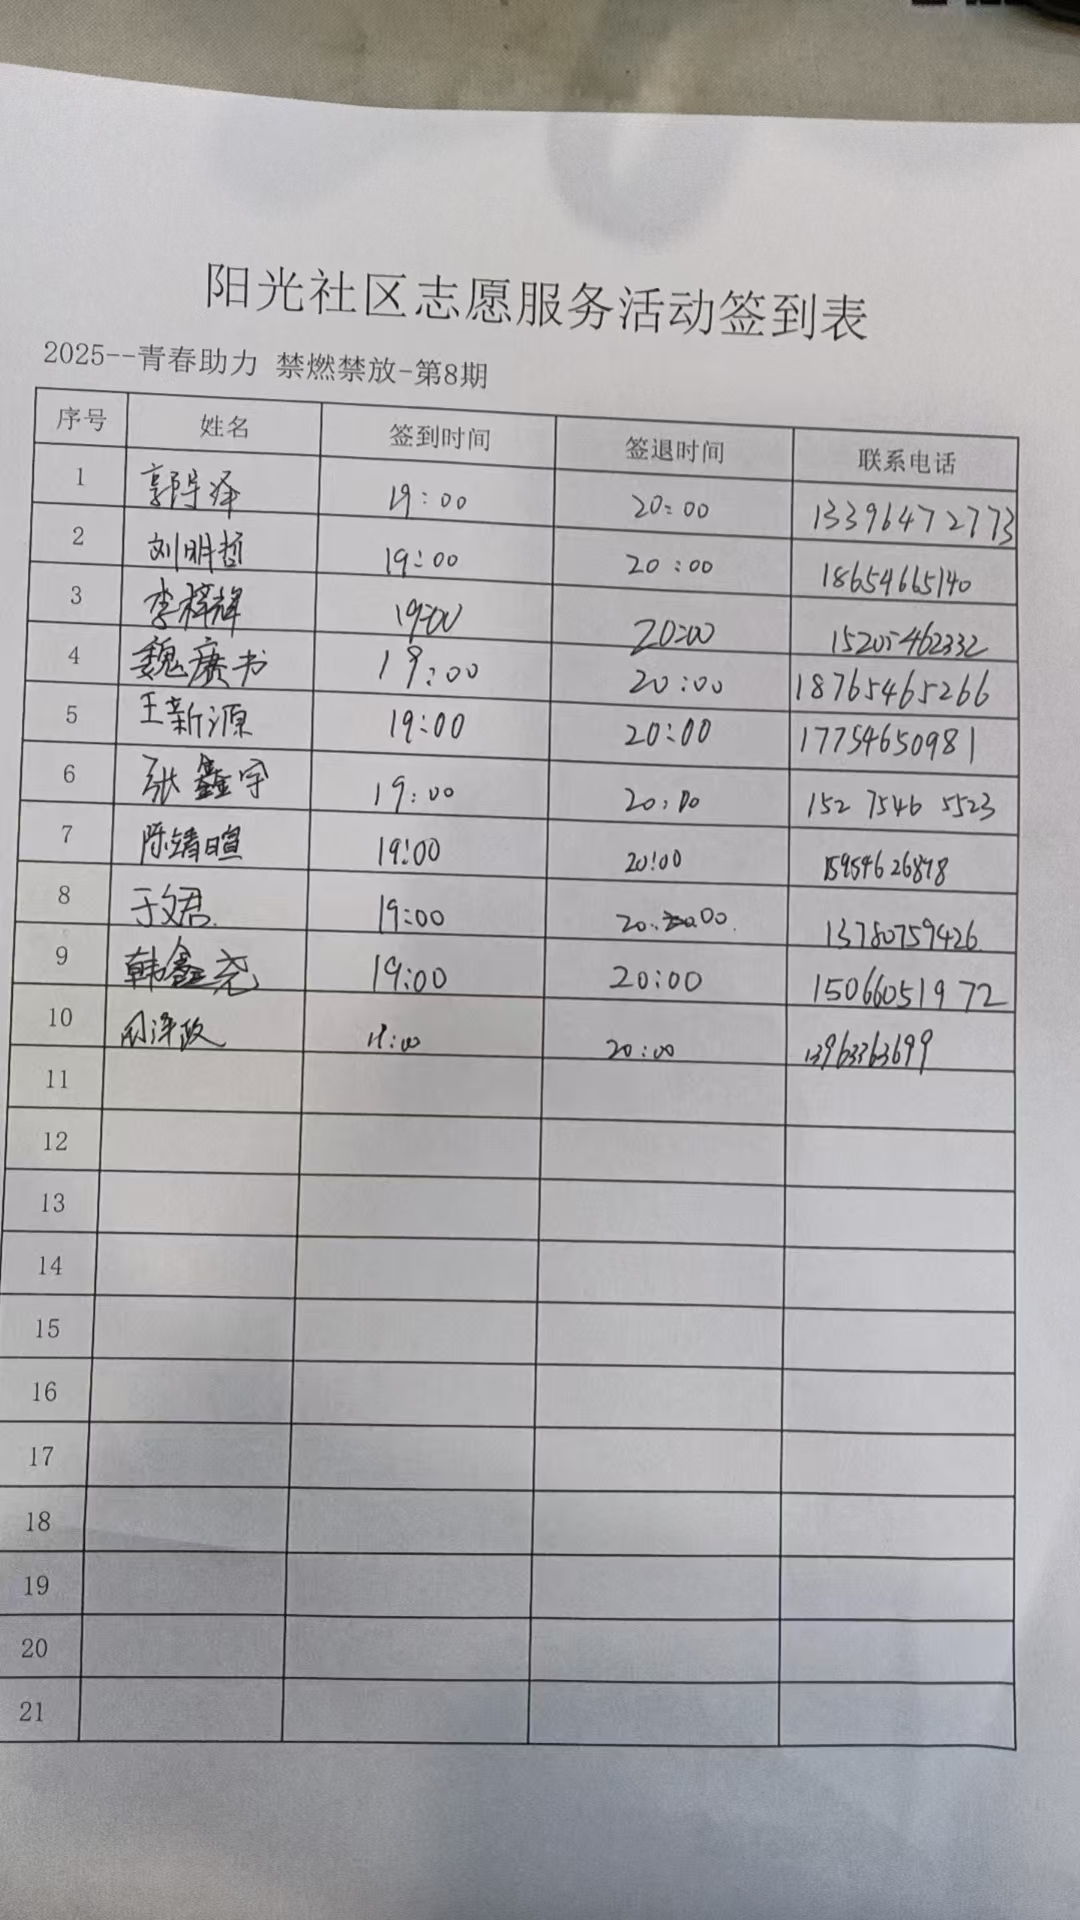 阳光社区志愿服务活动签到表
2025--青春助力 禁燃禁放-第8期
序号 姓名 签到时间 签退时间 联系电话
1 19:00 20:00 13396472773
2 刘明哲 19:00 20:00 18654665140
3 李梓锋 19:00 20:00 15205462332
4 魏赓书 19:00 20:00 18765465266
5 王新源 19:00 20:00 17754650981
6 张鑫宇 19:00 20:00 152 7546 5523
7 陈靖暄 19:00 20:00 15954626878
8 于文君. 19:00 20:00. 13780759426
9 韩鑫尧 19:00 20:00 15066051972
10 20:00 13963363699
11
12
13
14
15
16
17
18
19
20
21